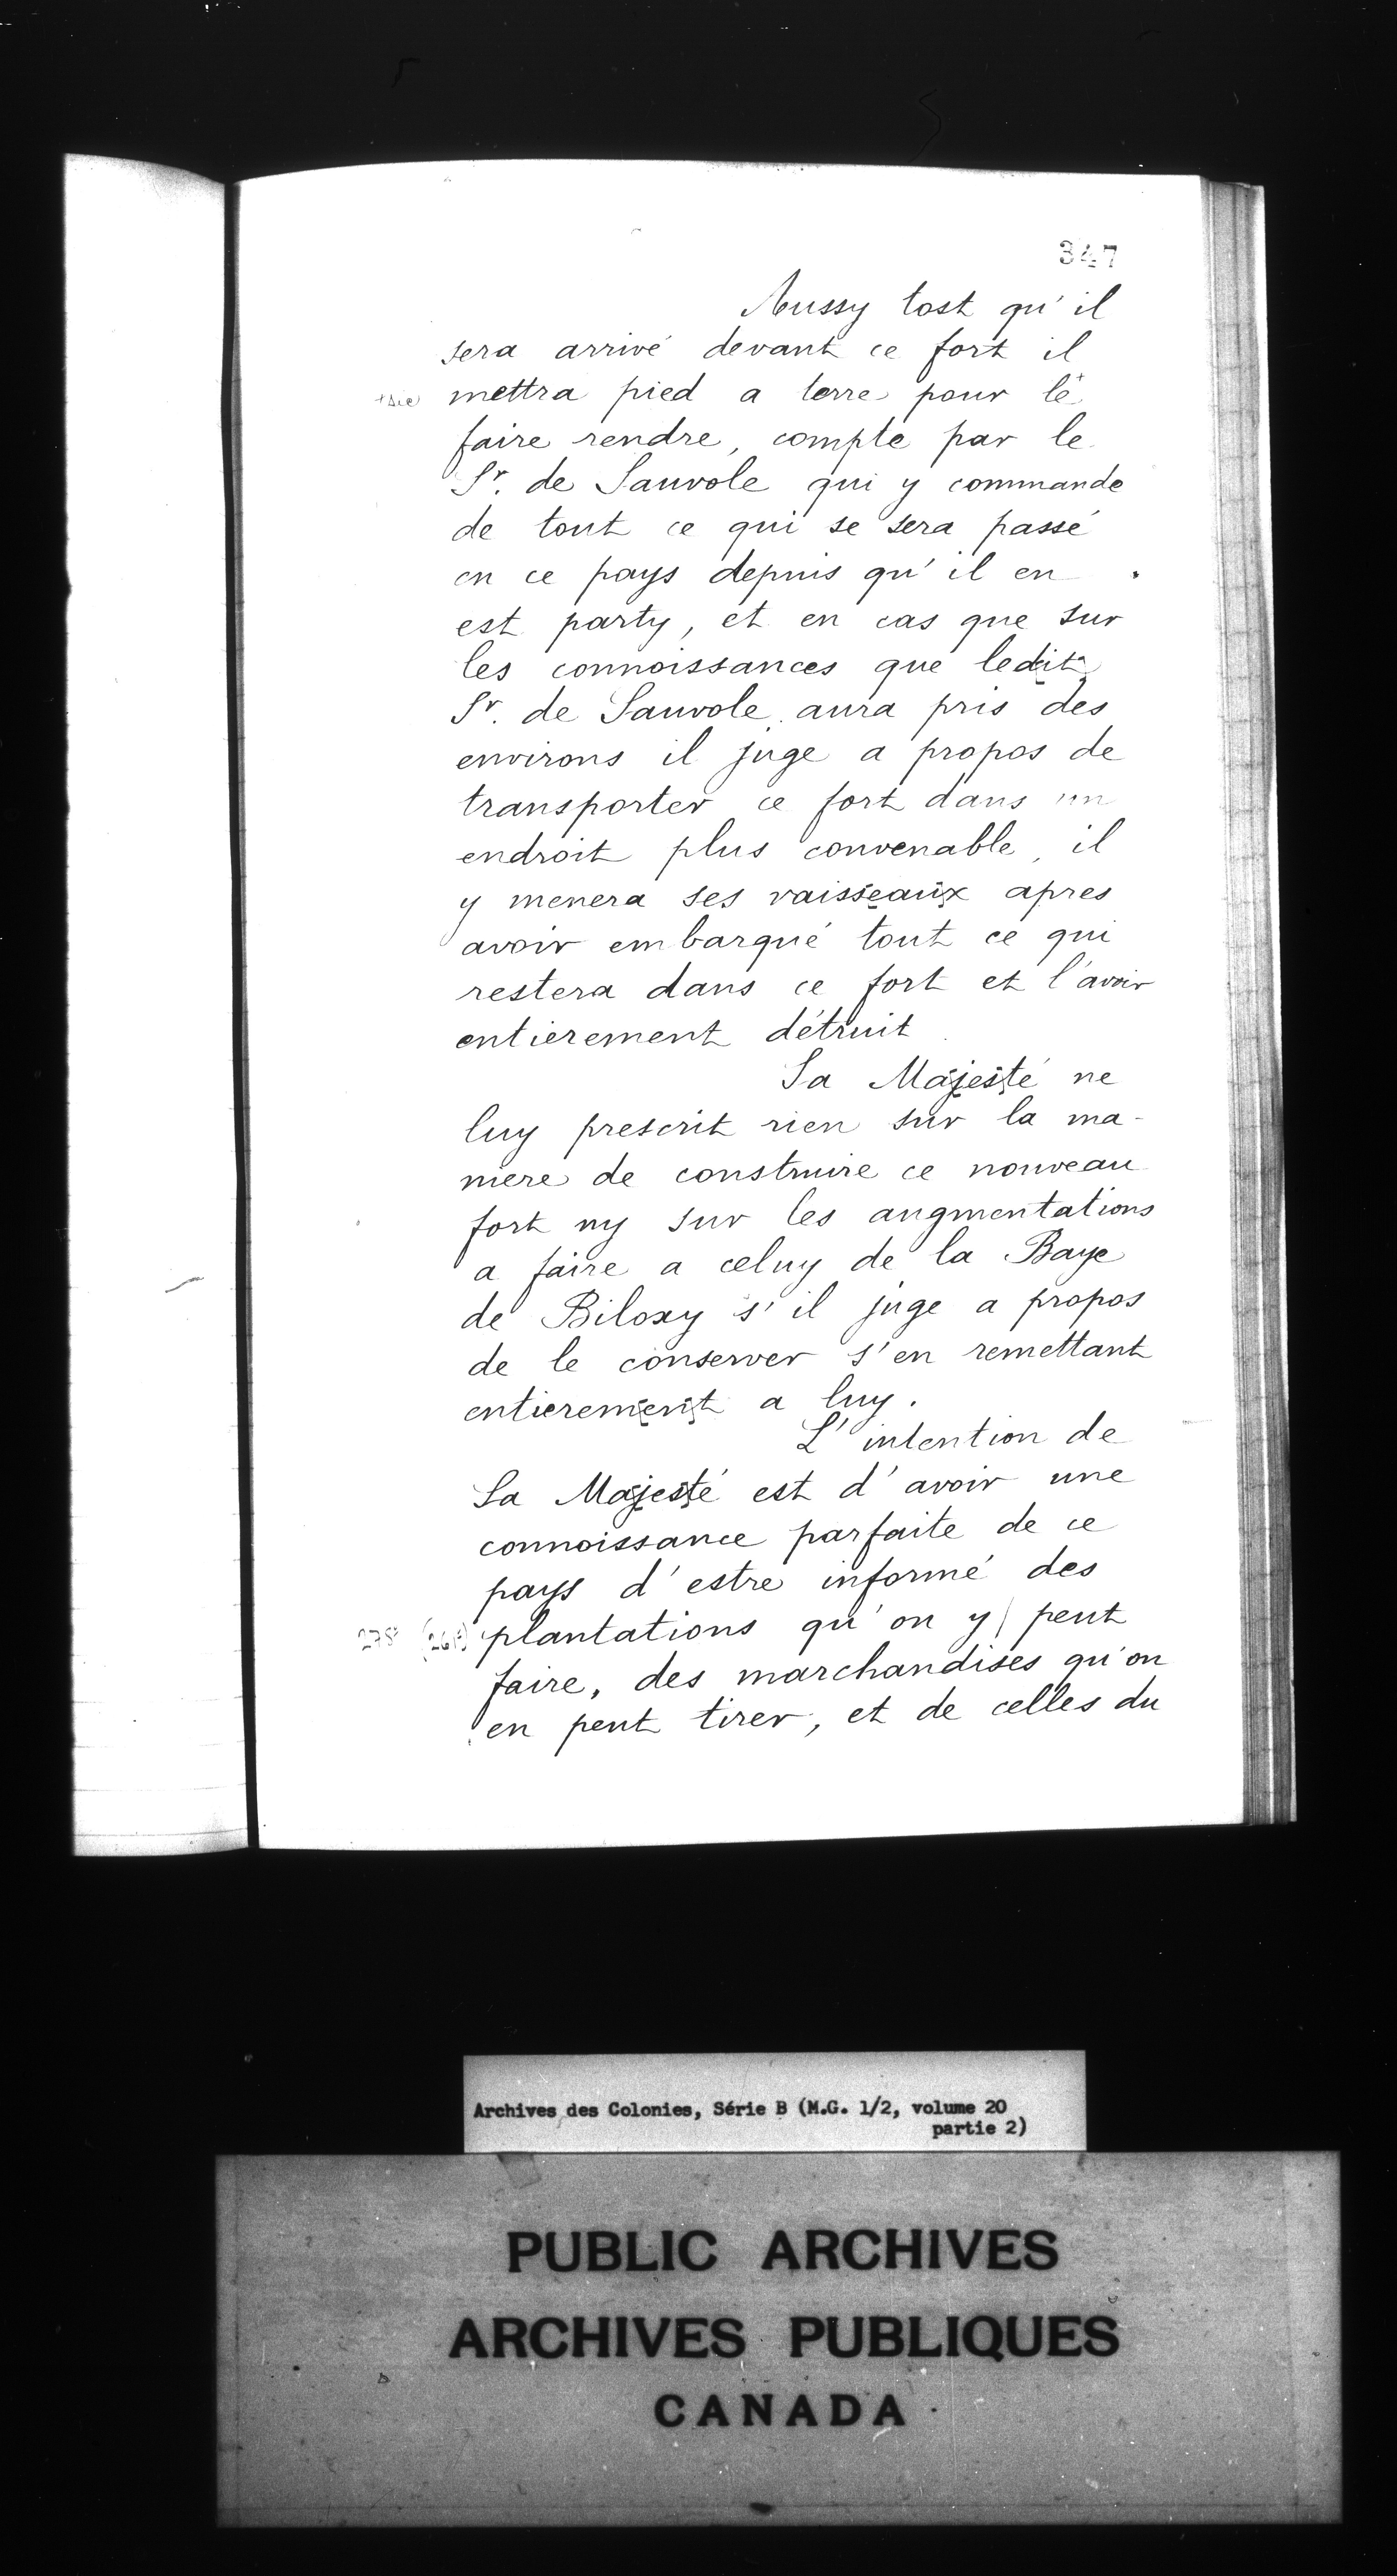 347
Aussy tost qu'il
sera arrivé devant ce fort il
+sic mettra pied a terre pour le+
faire rendre, compte par le
Sr. de Sauvole qui y commande
de tout ce qui se sera passé
en ce pays depuis qu'il en
est party, et en cas que sur
les connoissances que ledit
Sr. de Sauvole aura pris des
environs il juge a propos de
transporter ce fort dans un
endroit plus convenable, il
y menera ses vaisseaux apres
avoir embarqué tout ce qui
restera dans ce fort et l'avoir
entierement détruit
Sa Majesté ne
luy prescrit rien sur la ma-
niere de construire ce nouveau
fort ny sur les augmentations
a faire a celuy de la Baye
de Biloxy s'il juge a propos
de le conserver s'en remettant
entierement a luy.
L'intention de
Sa Majesté est d'avoir une
connoissance parfaite de ce
pays d'estre informé des
plantations qu'on y | peut
faire, des marchandises qu'on
en peut tirer, et de celles du
Archives des Colonies, Série B (M.G. 1/2, volume 20
partie 2)
PUBLIC ARCHIVES
ARCHIVES PUBLIQUES
CANADA